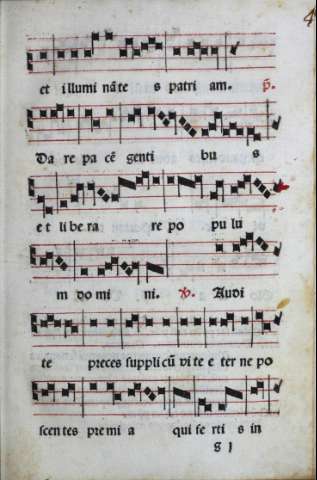 4
et illumināte s patri am. p̄.
Da re pa cē genti bu s
et li be ra re po pu lu
m do mi ni. ℟. Audi
te preces suppli cū vi te e ter ne po
scen tes pre mi a qui fer tis in
g j